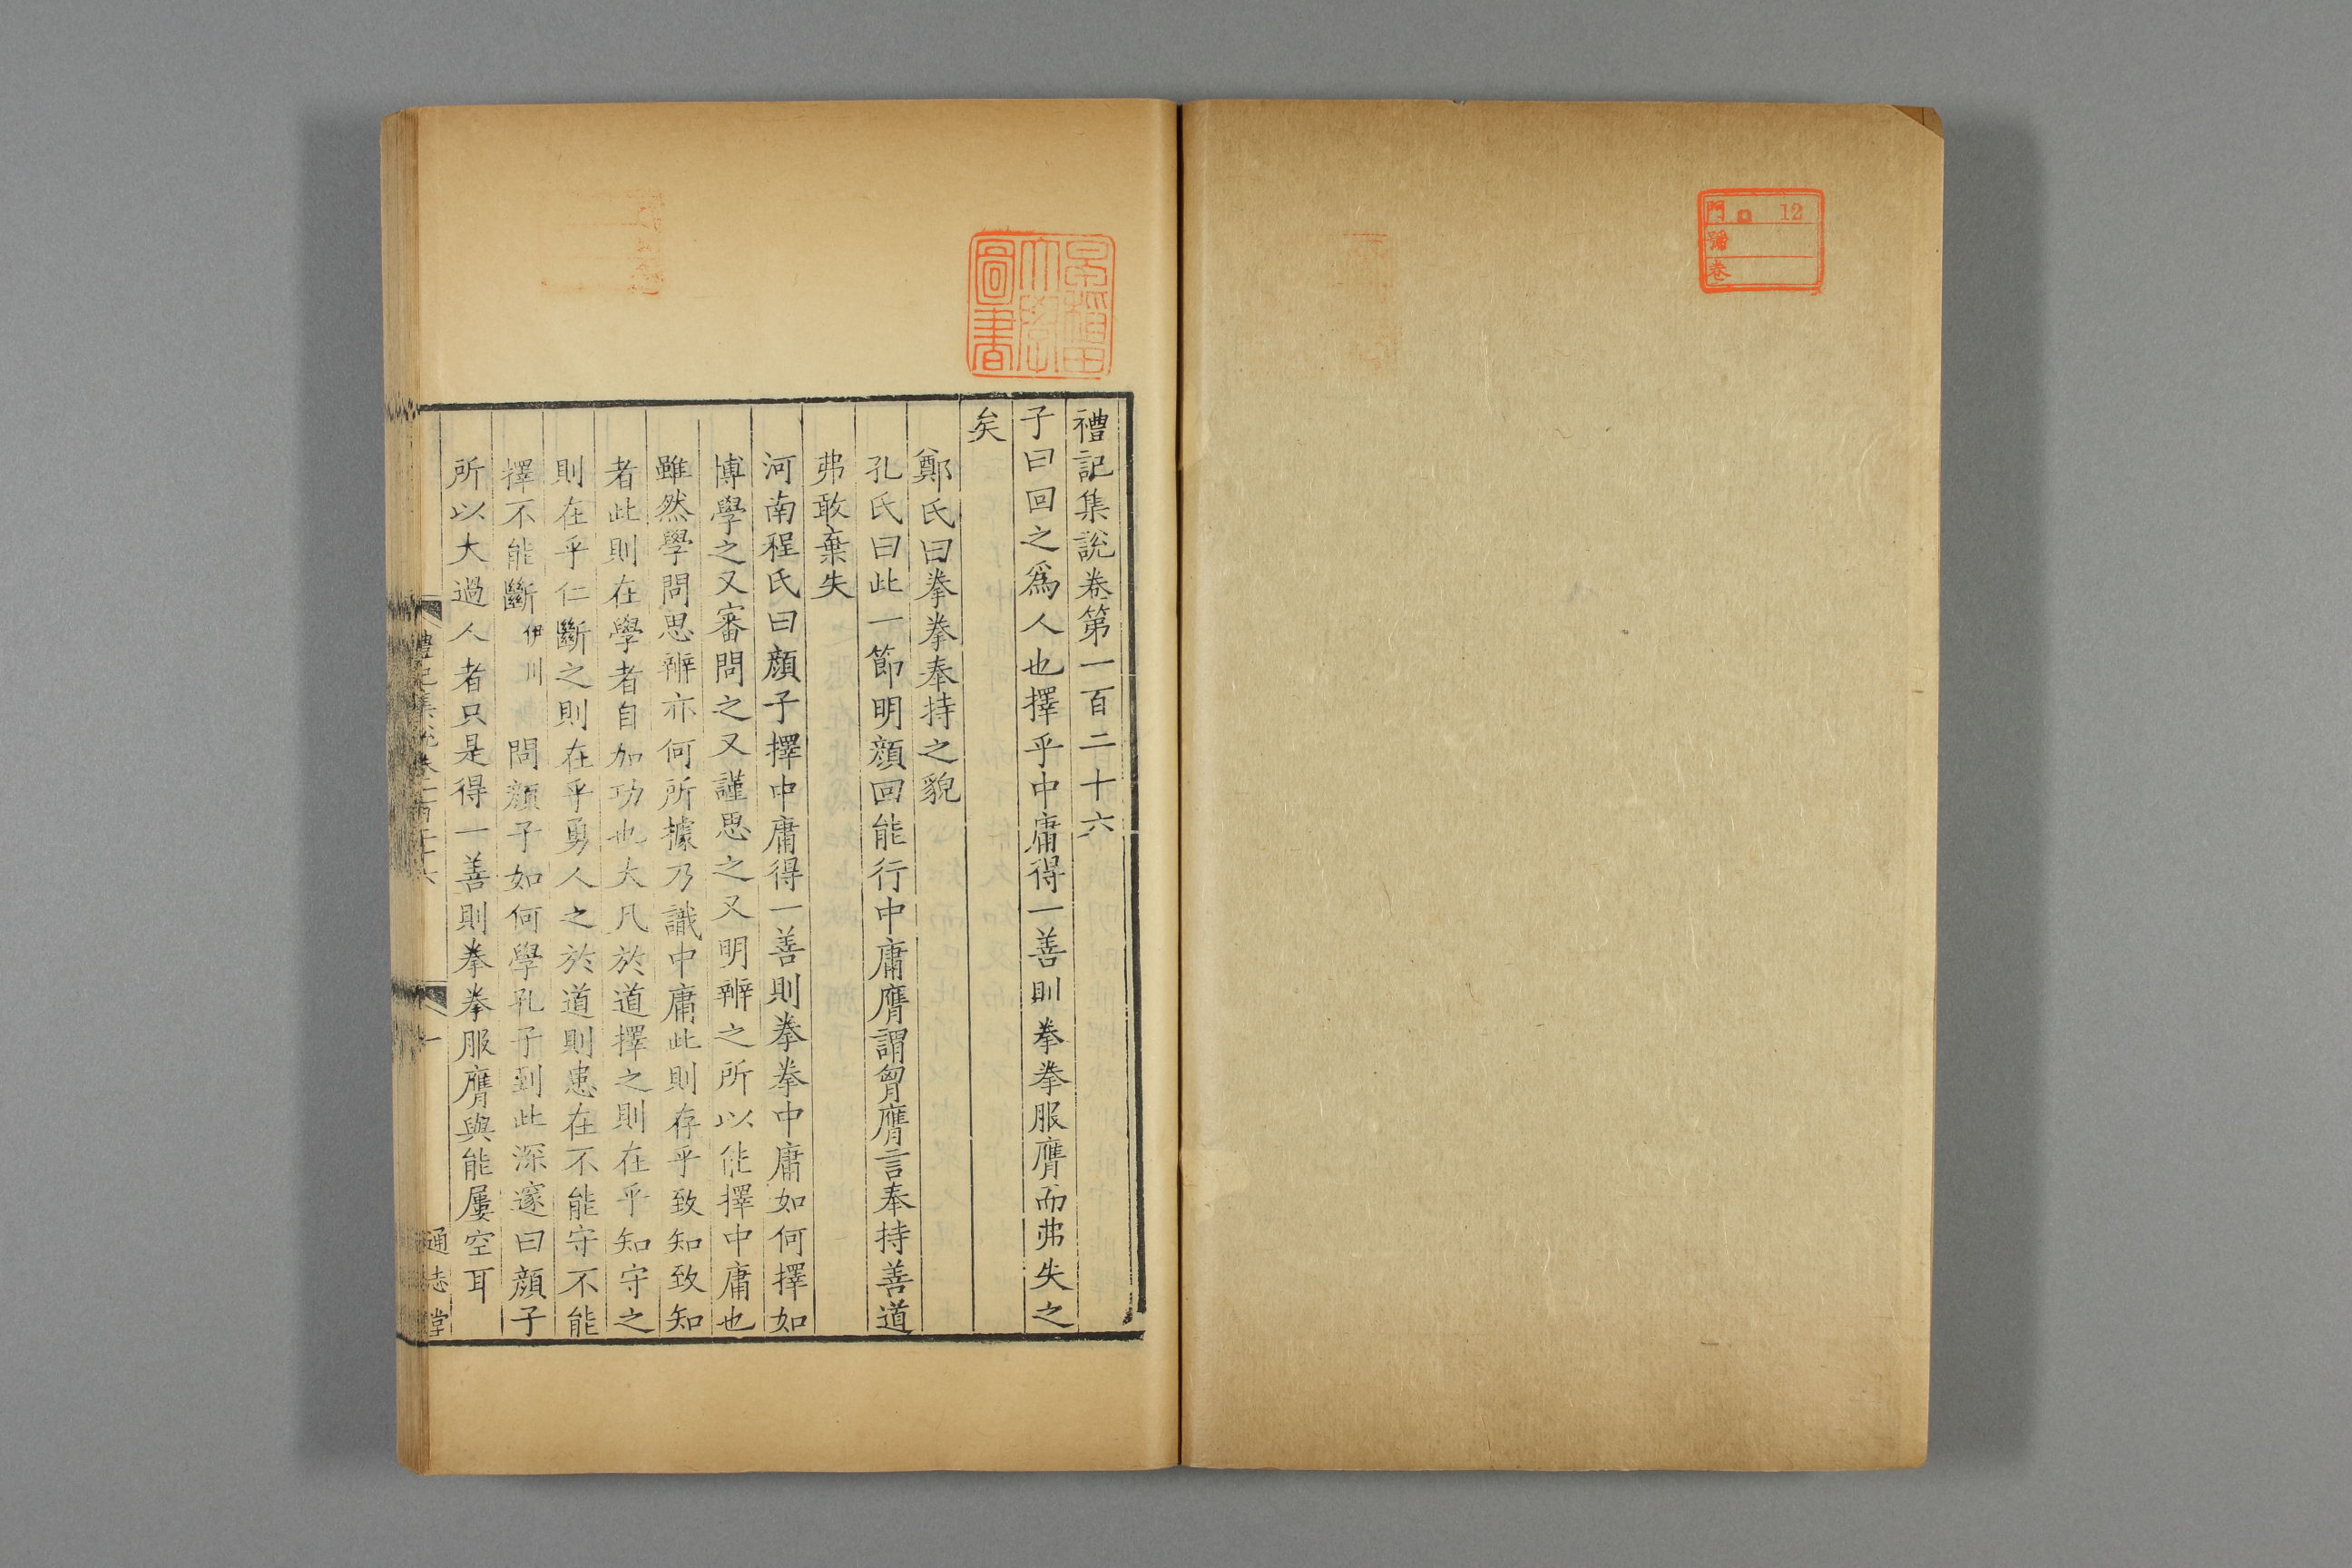 門 ロ 12
號
卷
早稲田
大學
圖書
禮記集說卷第一百二十六
子曰回之爲人也擇乎中庸得一善則拳拳服膺而弗失之
矣
鄭氏曰拳拳奉持之貌
孔氏曰此一節明顔回能行中庸膺謂胷膺言奉持善道
弗敢棄失
河南程氏曰顔子擇中庸得一善則拳拳中庸如何擇如
博學之又審問之又謹思之又明辨之所以能擇中庸也
雖然學問思辨亦何所據乃識中庸此則存乎致知致知
者此則在學者自加功也大凡於道擇之則在乎知守之
則在乎仁斷之則在乎勇人之於道則患在不能守不能
擇不能斷伊川 問顔子如何學孔子到此深邃曰顔子
所以大過人者只是得一善則拳拳服膺與能屢空耳
禮記集說卷一百二十六 一 通志堂